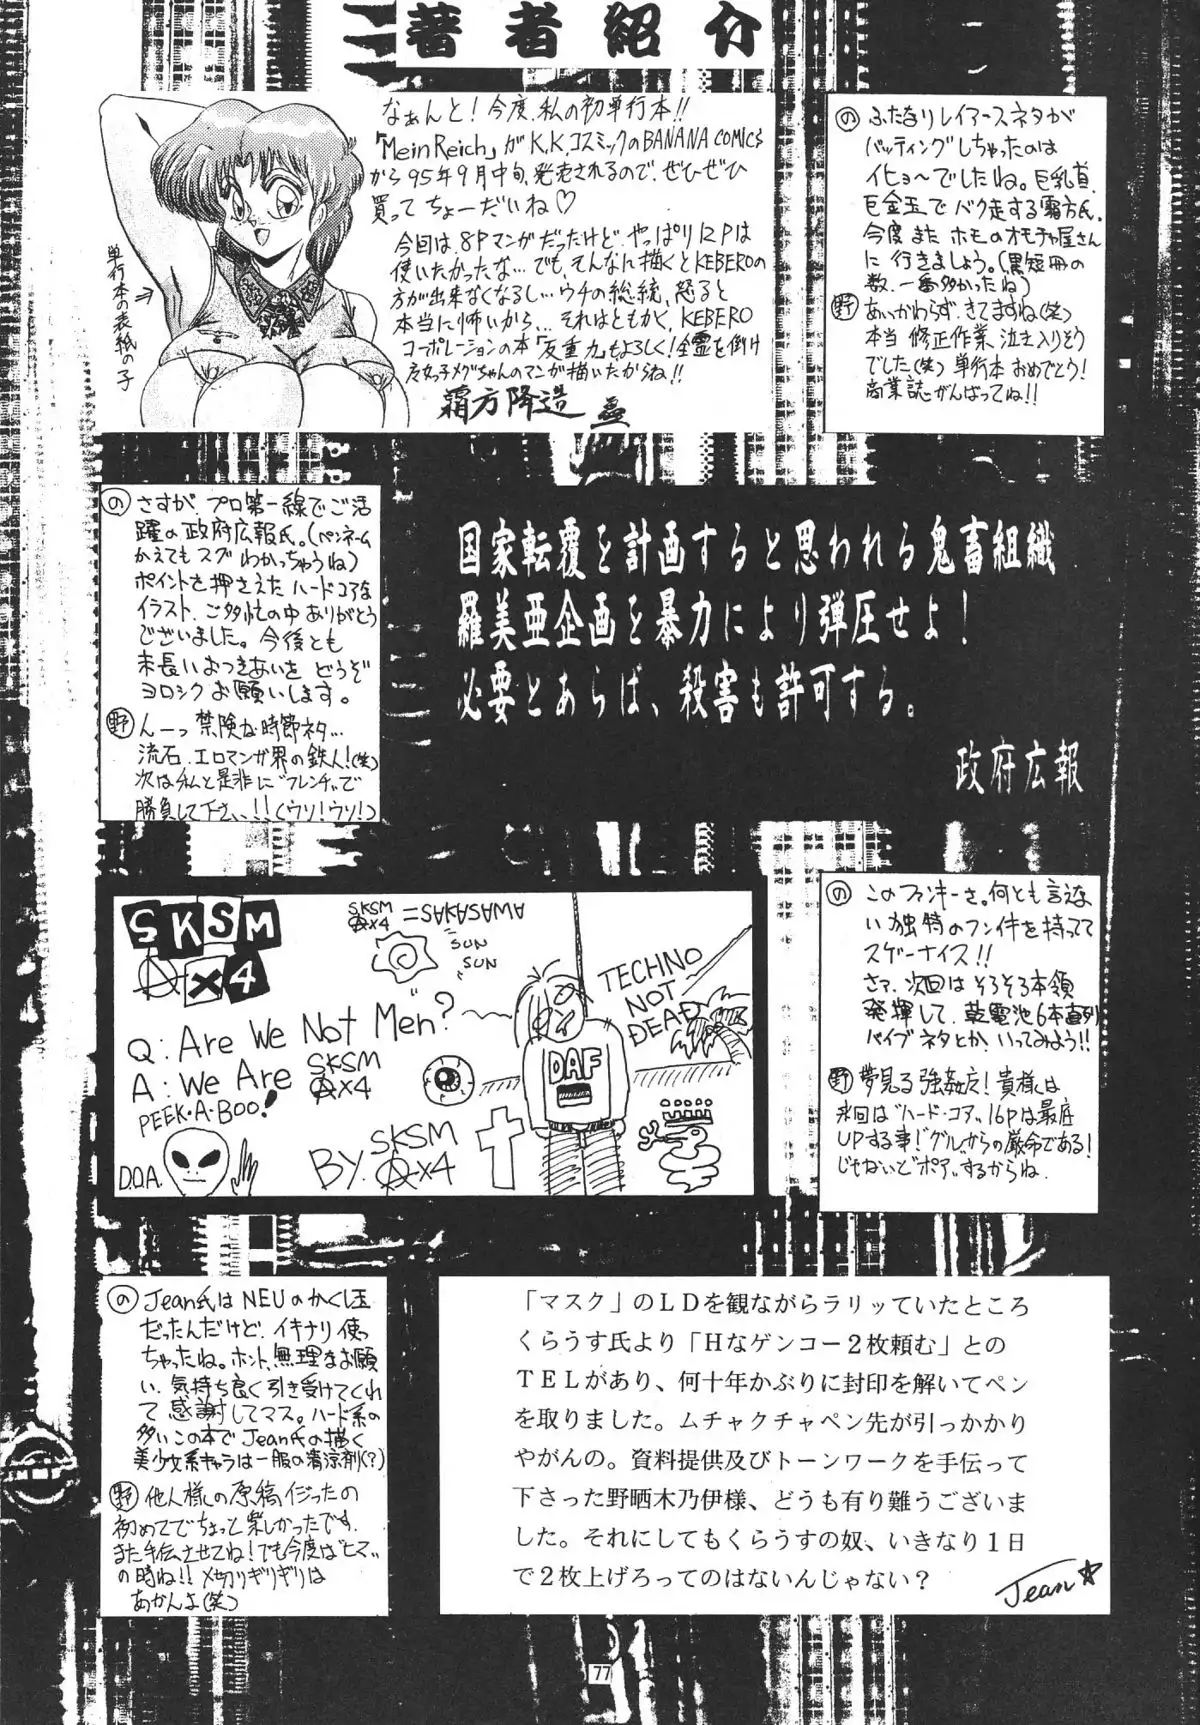 著者紹介
なぁんと!今度、私の初単行本!!
「Mein Reich」がK.K.コスミックのBANANA COMICS
から95年9月中旬、発売されるので、ぜひぜひ
買ってちょーだいね♡
今回は、8Pマンガだったけど、やっぱり12Pは
使いたかったな…でも、そんなに描くとKEBEROの
方が出来なくなるし…ウチの総統、怒ると
本当に怖いから…それはともかく、KEBERO
コーポレーションの本
もよろしく!
メグちゃんのマンガ描いたからね!!
霜方降造
単行本の表紙の子
の ふたなりレイアースネタが
バッティングしちゃったのは
イヒョ〜でしたね。巨乳真
巨金玉でバク走する霜方氏。
今度またホモのオモチャ屋さん
に行きましょう。(黒短冊の
数、一番多かったね)
野 あいかわらず、きてますね(笑)
本当 修正作業、泣き入りそう
でした(笑)単行本おめでとう!
商業誌がんばってね!!
の さすが、プロ第一線でご活
躍の政府広報氏。(ペンネーム
かえてもスグわかっちゃうね)
ポイントを押さえたハードコアな
イラスト、ご多忙の中ありがとう
ございました。今後とも
末長いおつきあいをどうぞ
ヨロシクお願いします。
野 んーっ 禁険な時節ネタ…
流石、エロマンガ界の鉄人!(笑)
次は私と是非に"フレンチ"で
勝負して下さい!!(ウソ!ウソ!)
国家転覆を計画すると思われる鬼畜組織
羅美亜企画を暴力により弾圧せよ!
必要とあらば、殺害も許可する。
政府広報
SKSM
A×4
SKSM
A×4
=SAKASAMA
SUN
SUN
Q: Are We Not Men"?
A: We Are SKSM
A×4
PEEK・A・BOO!
D.O.A.
BY. SKSM
A×4
TECHNO
NOT
DEAD
DAF
の このファンキーさ。何とも言えな
い独特のフン件を持ってて
スゲーナイス!!
さァ、次回はそろそろ本領
発揮して、乾電池6本直列
バイブネタとか、いってみよう!!
野 夢見る強姦友!貴様は
次回は"ハード・コア"16Pは最底
UPする事!"グル"からの厳命である!
じゃないと"ポア"するからね。
の Jean氏はNEUのかくし玉
だったんだけど、イキナリ使っ
ちゃったね。ホント、無理なお願
い、気持ち良く引き受けてくれ
て感謝してマス。ハード系の
多いこの本でJean氏の描く
美少女系キャラは一服の清涼剤(?)
野 他人様の原稿イジったの
初めてでちょっと楽しかったです。
また手伝させてね!でも今度は"ヒマ"
の時ね!!〆切りギリギリは
あかんよ(笑)
「マスク」のLDを観ながらラリッていたところ
くらうす氏より「Hなゲンコー2枚頼む」との
TELがあり、何十年かぶりに封印を解いてペン
を取りました。ムチャクチャペン先が引っかかり
やがんの。資料提供及びトーンワークを手伝って
下さった野晒木乃伊様、どうも有り難うございま
した。それにしてもくらうすの奴、いきなり1日
で2枚上げろってのはないんじゃない?
Jean☆
77